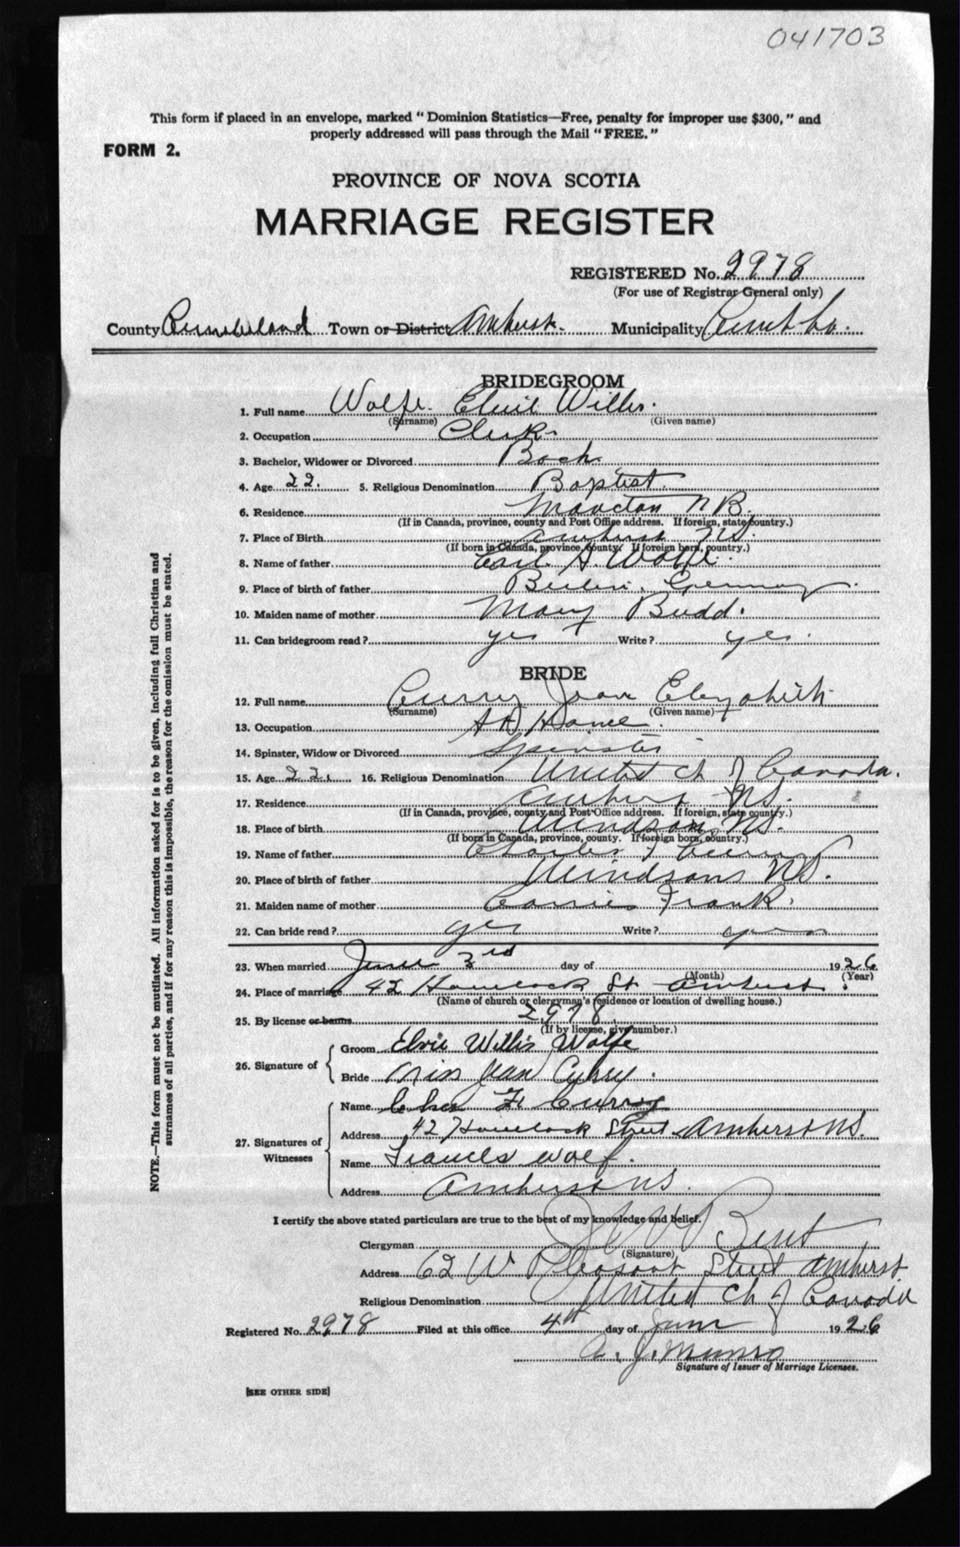 041703
This form if placed in an envelope, marked "Dominion Statistics—Free, penalty for improper use $300," and
properly addressed will pass through the Mail "FREE."
FORM 2.
PROVINCE OF NOVA SCOTIA
MARRIAGE REGISTER
REGISTERED No. 2978
(For use of Registrar General only)
County Cumberland Town or District Amherst. Municipality Cumb Co.
BRIDEGROOM
1. Full name Wolfe. Willis.
(Surname) (Given name)
2. Occupation Clerk
3. Bachelor, Widower or Divorced Bach
4. Age 22. 5. Religious Denomination Baptist.
6. Residence Moncton NB.
(If in Canada, province, county and Post Office address. If foreign, state country.)
7. Place of Birth Amherst NS.
(If born in Canada, province, county. If foreign born, country.)
8. Name of father A. Wolfe.
9. Place of birth of father Berlin, Germany.
10. Maiden name of mother Mary Budd.
11. Can bridegroom read? yes Write? yes.
BRIDE
12. Full name Curry Jean Elizabeth
(Surname) (Given name)
13. Occupation At Home.
14. Spinster, Widow or Divorced Spinster
15. Age 22. 16. Religious Denomination United Ch of Canada.
17. Residence Amherst NS.
(If in Canada, province, county and Post Office address. If foreign, state country.)
18. Place of birth Windsor NS.
(If born in Canada, province, county. If foreign born, country.)
19. Name of father Charles F Curry
20. Place of birth of father NS.
21. Maiden name of mother Carrie Frank.
22. Can bride read? yes Write? yes
23. When married June 3rd day of 1926
(Month) (Year)
24. Place of marriage 42 Havelock St Amherst.
(Name of church or clergyman's residence or location of dwelling house.)
25. By license or banns 2978
(If by license, give number.)
26. Signature of
Groom Elvie Willis Wolfe
Bride Miss Jean Curry.
27. Signatures of
Witnesses
Name Chas F. Curry
Address 42 Havelock Street Amherst NS.
Name Frances Wolf.
Address Amherst NS.
I certify the above stated particulars are true to the best of my knowledge and belief.
Clergyman Bent
(Signature)
Address 62 W Pleasant Street Amherst
Religious Denomination United Ch of Canada
Registered No. 2978 Filed at this office 4th day of June 1926
A. J. Munro
Signature of Issuer of Marriage Licenses.
(SEE OTHER SIDE)
NOTE.—This form must not be mutilated. All information asked for is to be given, including full Christian and
surnames of all parties, and if for any reason this is impossible, the reason for the omission must be stated.